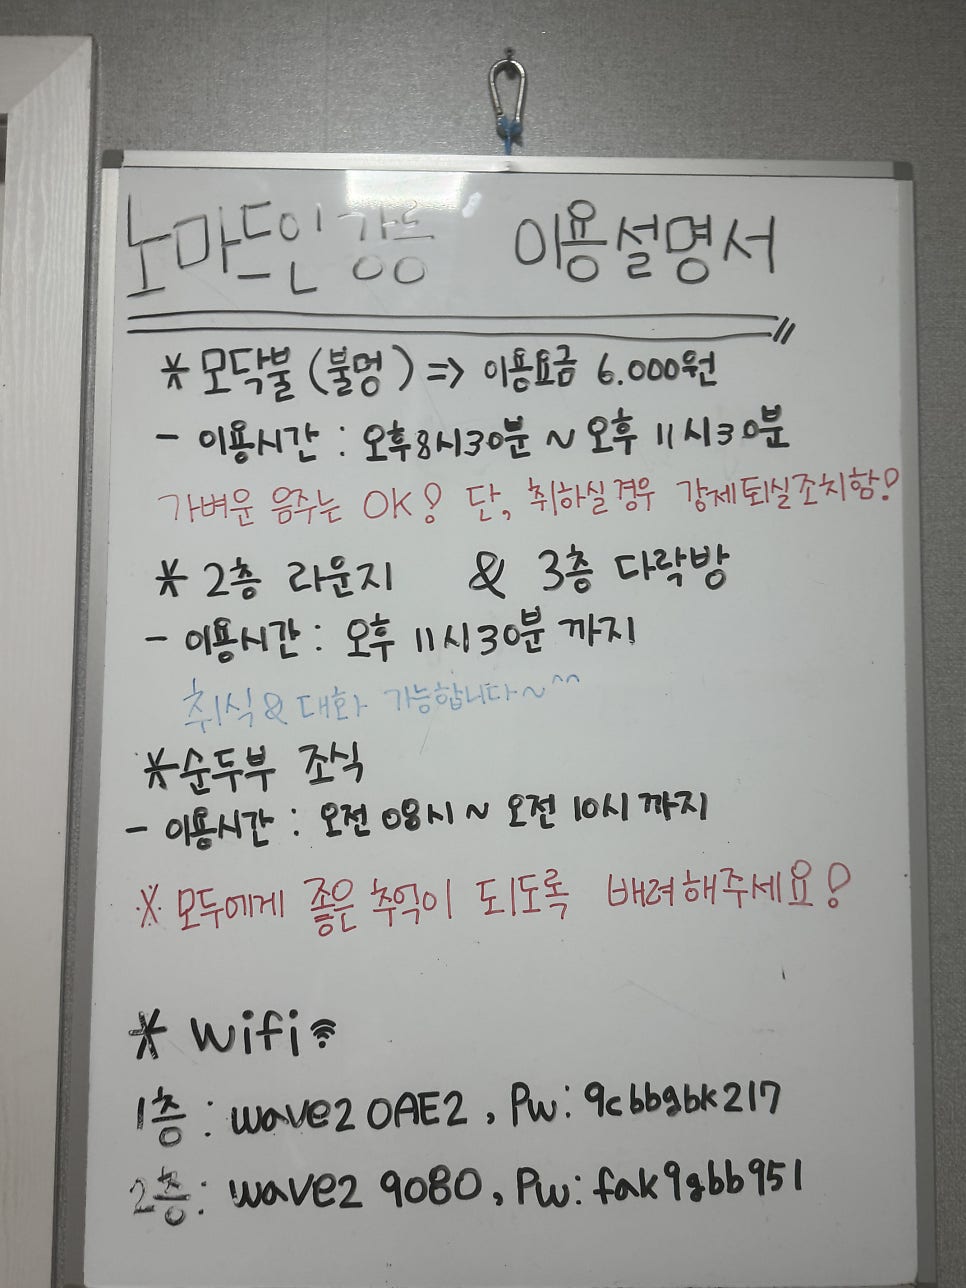 노마드인 강릉 이용설명서
* 모닥불 (불멍) => 이용요금 6.000원
- 이용시간 : 오후8시30분 ~ 오후 11시30분
가벼운 음주는 OK! 단, 취하실 경우 강제퇴실조치함!
* 2층 라운지 & 3층 다락방
- 이용시간 : 오후 11시30분 까지
취식 & 대화 가능합니다~^^
* 순두부 조식
- 이용시간 : 오전 08시 ~ 오전 10시 까지
※ 모두에게 좋은 추억이 되도록 배려해주세요!
* wifi
1층 : wave2 0AE2, Pw: 9cbbgbk217
2층 : wave2 9080, Pw: fak9gbb951